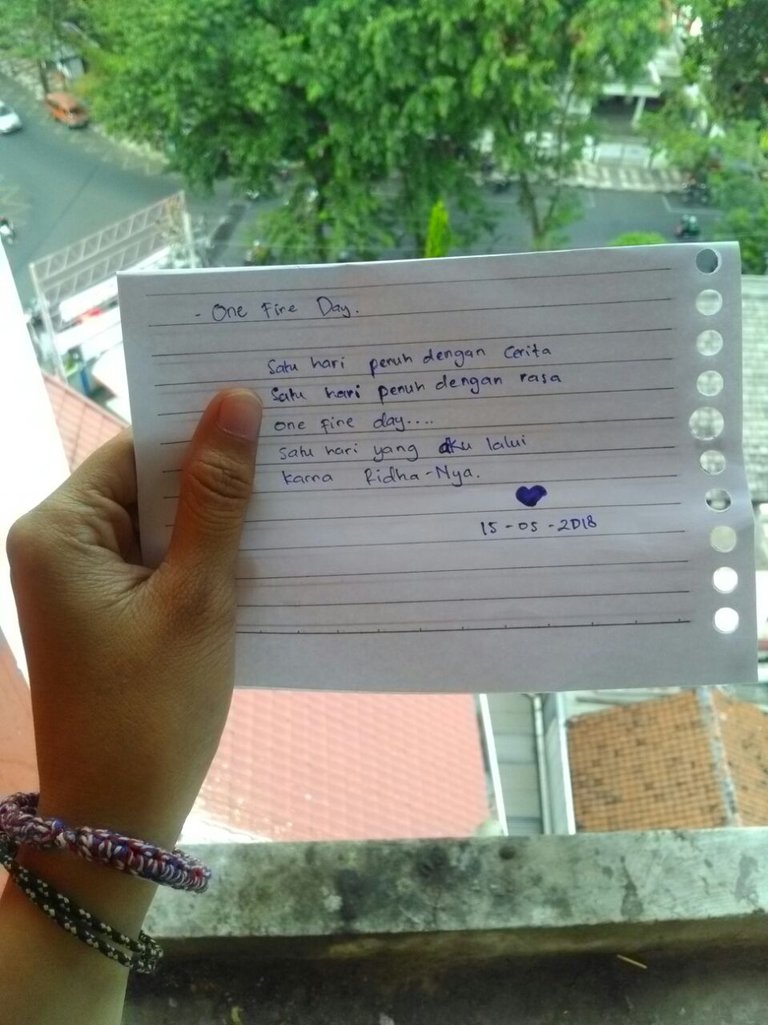 - One Fine Day.
Satu hari penuh dengan Cerita
Satu hari penuh dengan rasa
one fine day....
Satu hari yang aku lalui
karna Ridha-Nya.
15-05-2018